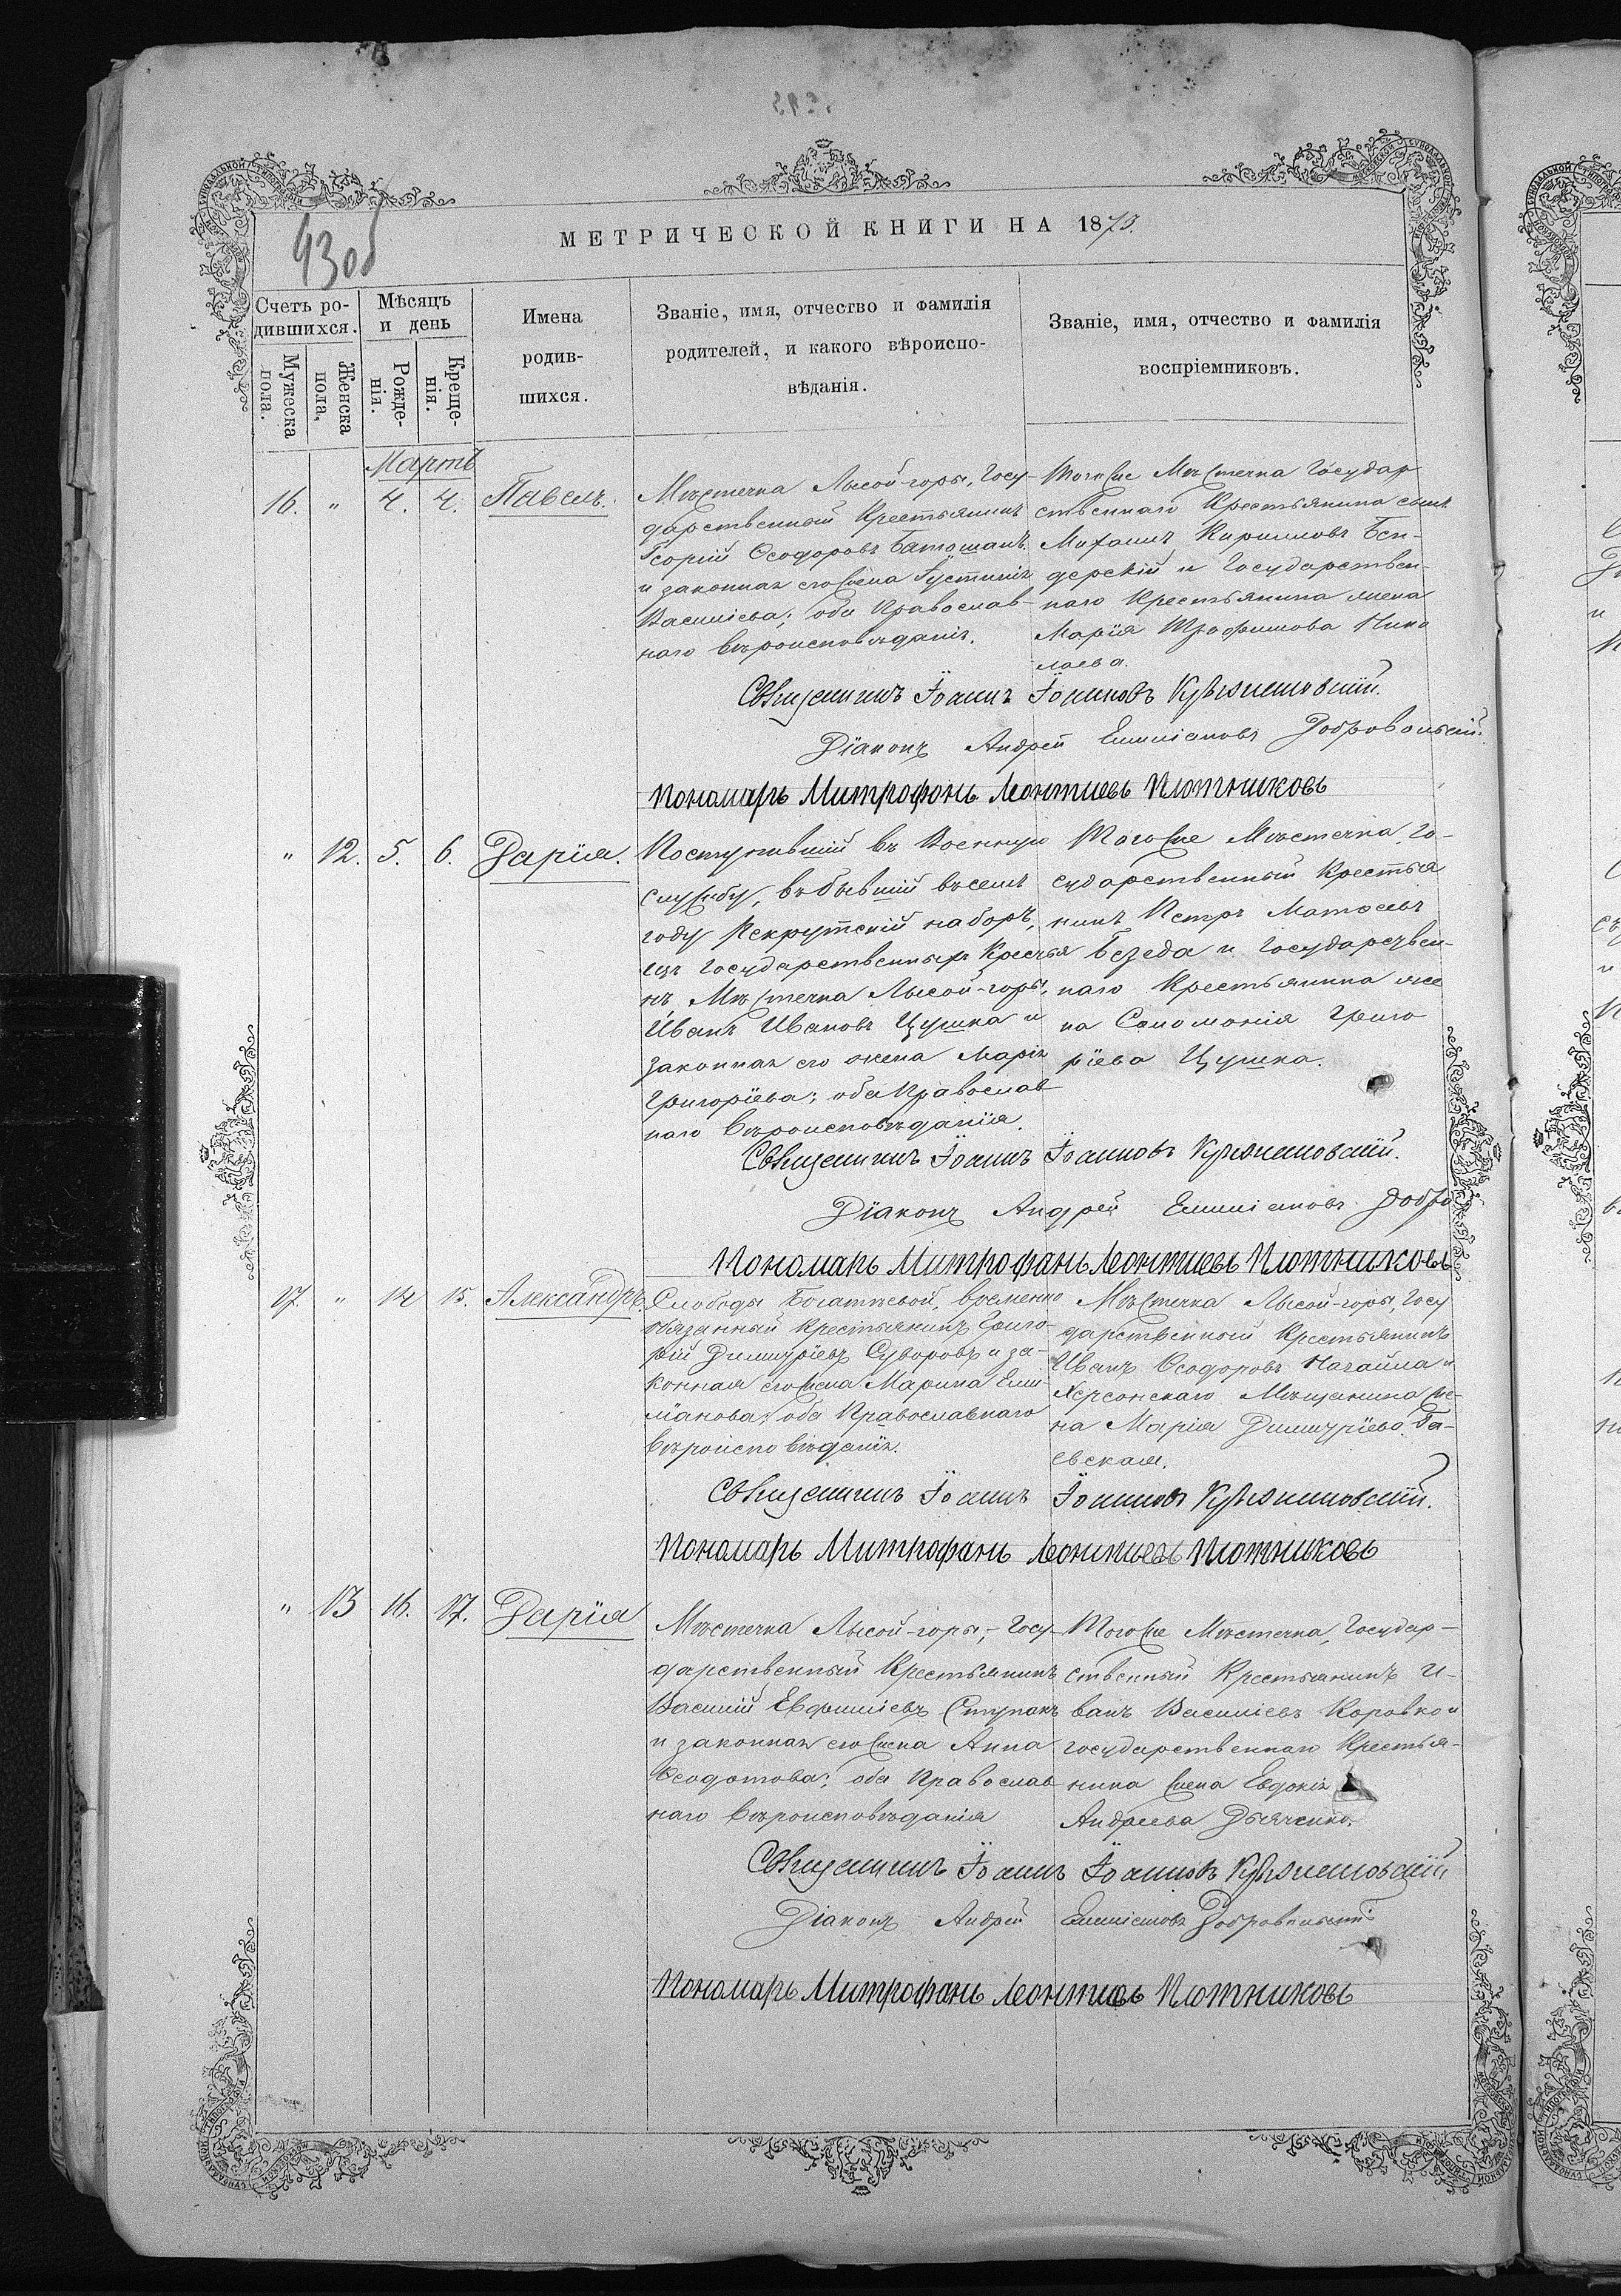 93об
МЕТРИЧЕСКОЙ КНИГИ НА 1873.
Счетъ ро-
дившихся.
Мужеска
пола.
Женска
пола.
Мѣсяцъ
и день
Рожде-
нія.
Креще-
нія.
Имена
родив-
шихся.
Званіе, имя, отчество и фамилія
родителей, и какого вѣроиспо-
вѣданія.
Званіе, имя, отчество и фамилія
воспріемниковъ.
Мартъ
16. " 4. 4. Павелъ.
Мѣстечка Лысой-горы, Госу-
дарственный Крестьянинъ
Георгій Ѳеодоровъ Батошанъ
и законная его жена Іустинія
Василіева; оба Православ-
наго вѣроисповѣданія.
Тогоже Мѣстечка Государ
ственнаго Крестьянина сынъ
Михаилъ Кирилловъ Бен-
дерскій и Государствен-
наго Крестьянина жена
Марія Трофимова Нико
лаева.
Священникъ Іоаннъ Іоанновъ
Діаконъ Андрей Емиліановъ Добровольскій.
Пономарь Митрофанъ Леонтіевъ Плотниковъ
" 12. 5. 6. Дарія.
Поступившій въ Военную
службу, въ бывшій въ семъ
году Рекрутскій наборъ,
изъ Государственныхъ Крестья
нъ Мѣстечка Лысой-горы,
Иванъ Ивановъ Цушка и
законная его жена Марія
Григоріева; оба Православ
наго вѣроисповѣданія.
Тогоже Мѣстечка, Го-
сударственный Крестья
нинъ Петръ Матѳеевъ
Безеда и Государствен-
наго Крестьянина же
на Соломонія Григо
ріева Цушка.
Священникъ Іоаннъ Іоанновъ
Діаконъ Андрей Емиліановъ Добро
Пономарь Митрофанъ Леонтіевъ Плотниковъ
17. " 14 15. Александръ.
Слободы Богатыевой, временно
обязанный Крестьянинъ Григо-
рій Димитріевъ Суворовъ и за-
конная его жена Марина Еми-
ліанова; оба Православнаго
вѣроисповѣданія.
Мѣстечка Лысой-горы, Госу
дарственный Крестьянинъ
Иванъ Ѳеодоровъ Нагайла и
Херсонскаго Мѣщанина же-
на Марія Димитріева Га-
евская.
Священникъ Іоаннъ Іоанновъ
Пономарь Митрофанъ Леонтіевъ Плотниковъ
" 13 16. 17. Дарія
Мѣстечка Лысой-горы,- Госу-
дарственный Крестьянинъ
Василій Евфиміевъ Ступакъ
и законная его жена Анна
Ѳеодотова; оба Православ
наго вѣроисповѣданія
Тогоже Мѣстечка, Государ-
ственный Крестьянинъ И-
ванъ Василіевъ Коровко и
государственнаго Крестья-
нина жена Евдокія
Андреева Дьяченко.
Священникъ Іоаннъ Іоанновъ
Діаконъ Андрей Емиліановъ Добровольскій
Пономарь Митрофанъ Леонтіевъ Плотниковъ